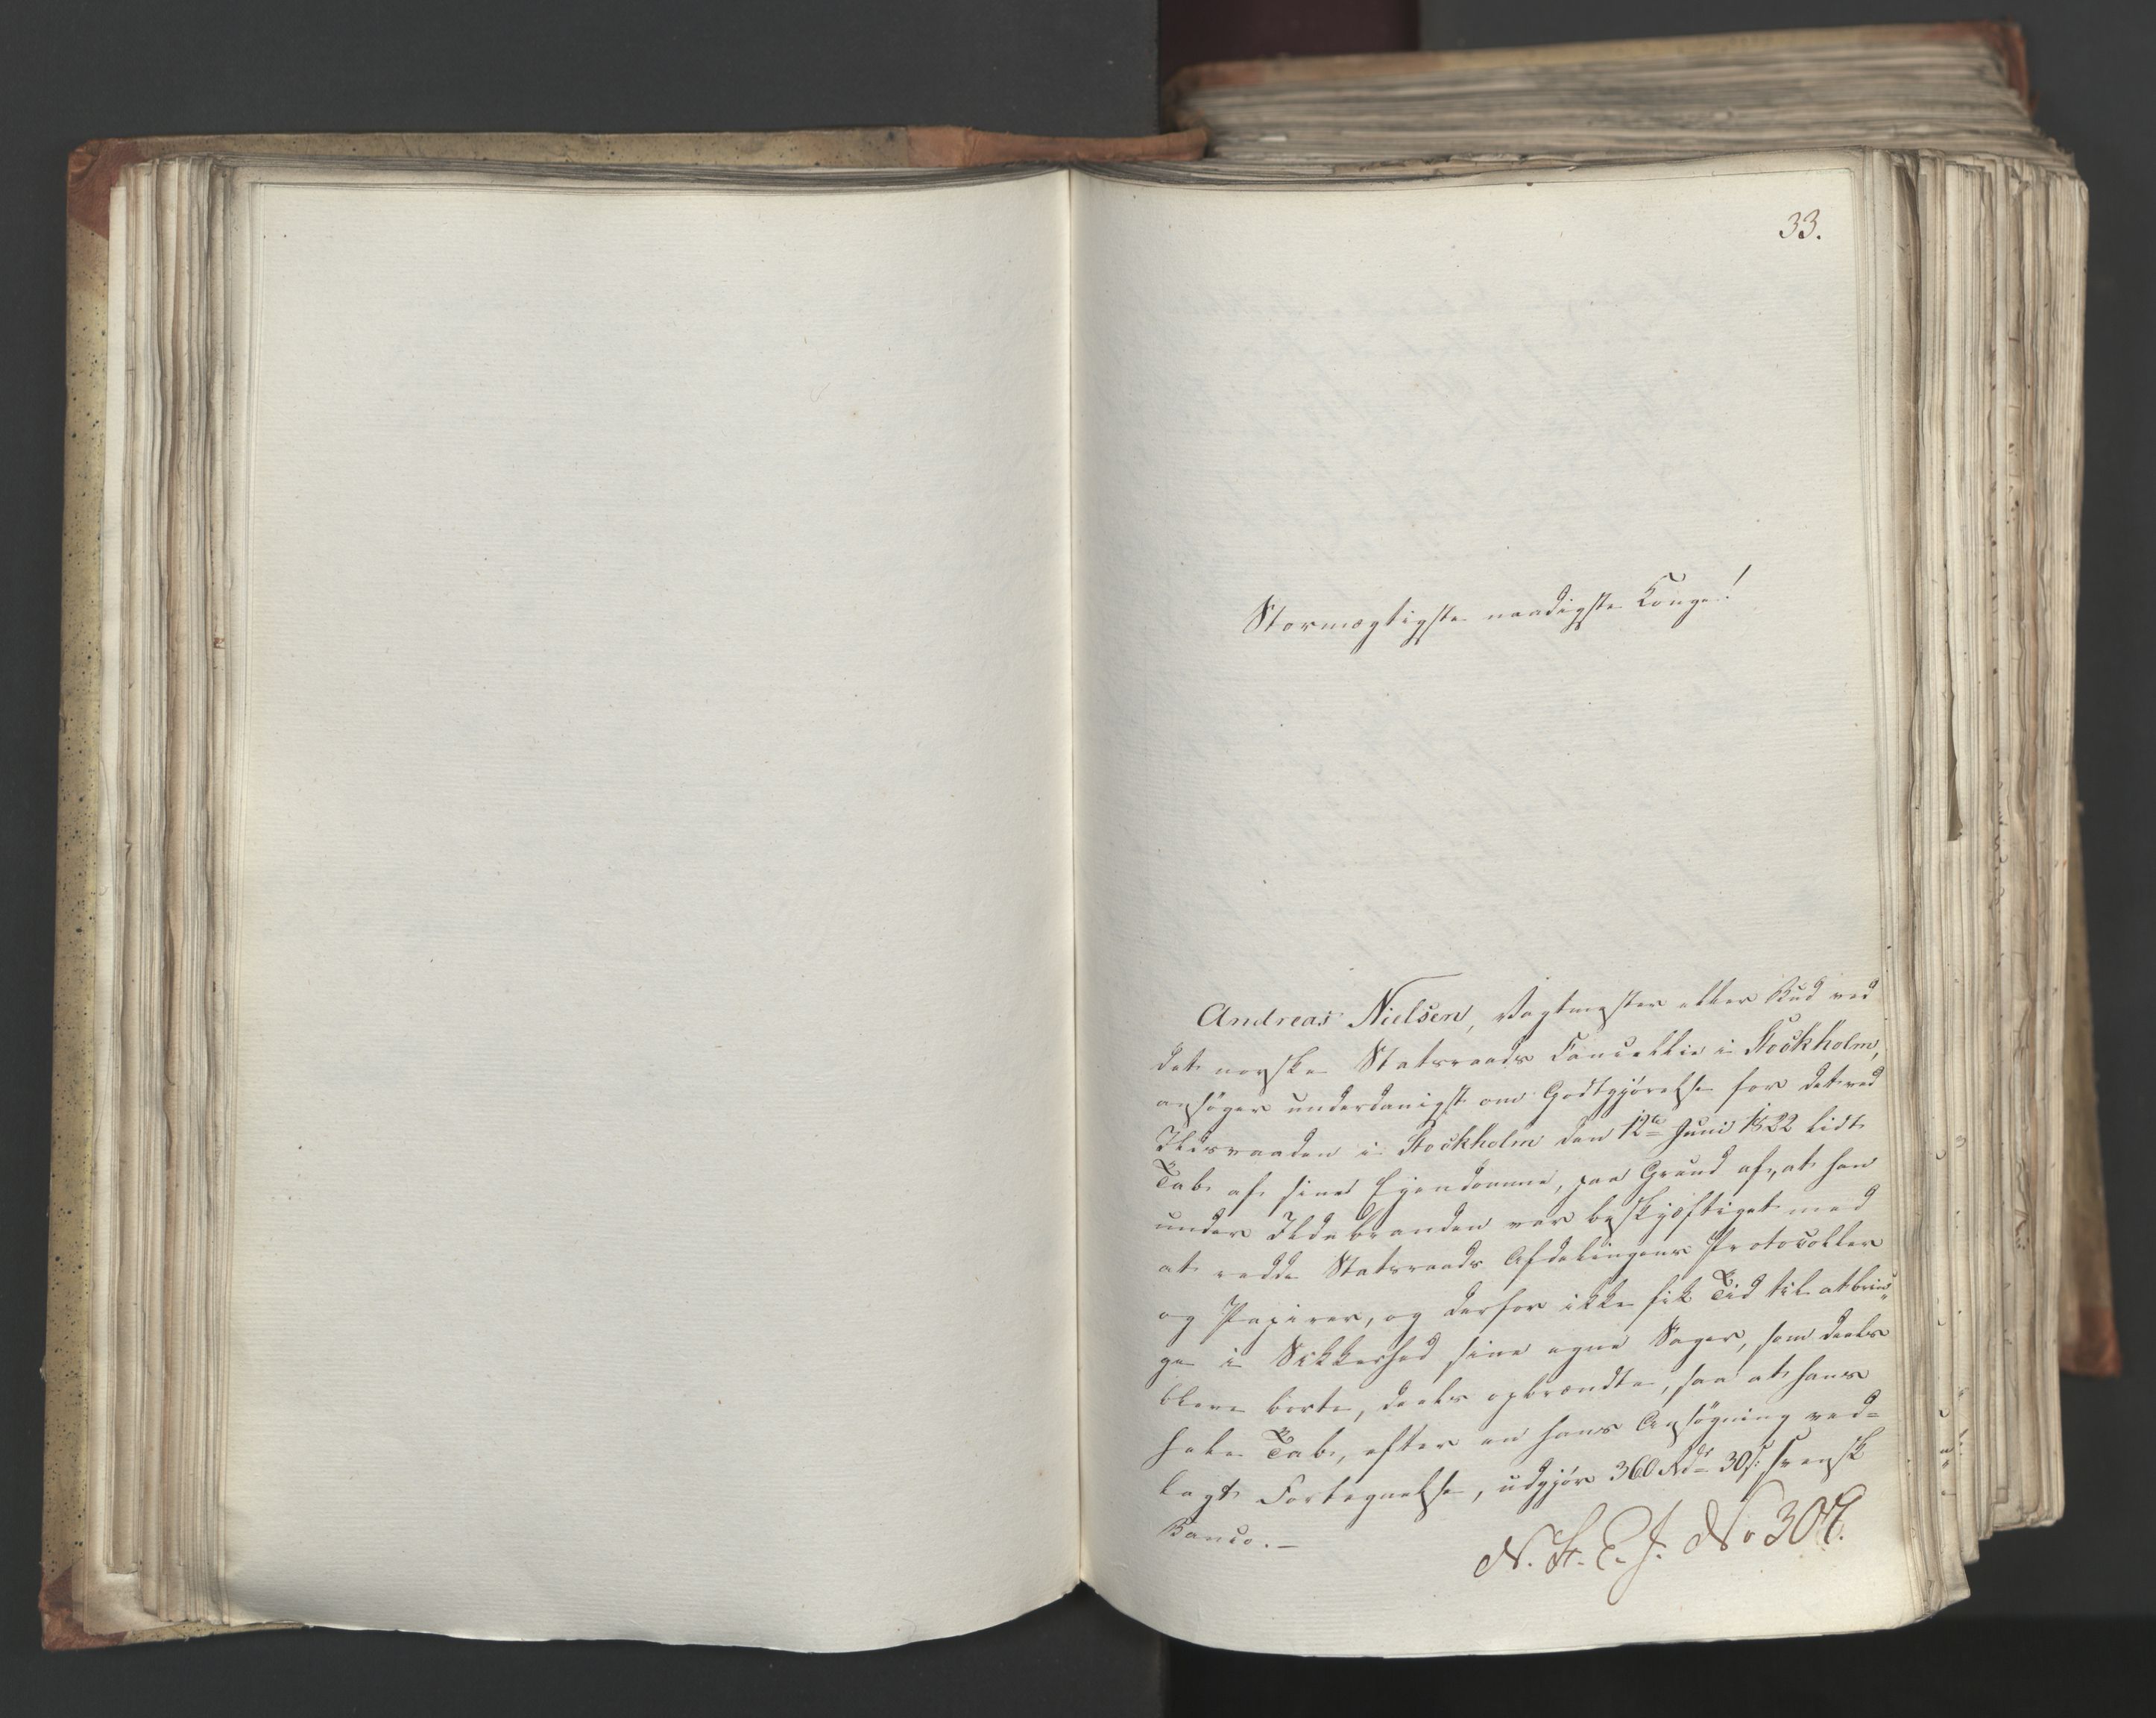 33.
Stormægtigste naadigste Konge!
Andreas Nielsen, Vagtmester eller Bud ved
det norske Statsraads Cancellie i Stockholm,
ansøger underdanigst om Godtgjørelse for det ved
Ildsvaaden i Stockholm den 12te Juni 1822 lidte
Tab af sine Ejendomme, paa Grund af, at han
under Ildebranden var beskjæftiget med
at redde Statsraads Afdelingens Protocoller
og Papirer, og derfor ikke fik Tid til at brin„
ge i Sikkerhed sine egne Sager, som deels
bleve borte, deels opbrændte, saa at hans
hele Tab, efter en hans Ansøgning ved=
lagt Fortegnelse, udgjør 360 Rdr 30 s. svensk
Banco.—
N. St. E. J. No 307.